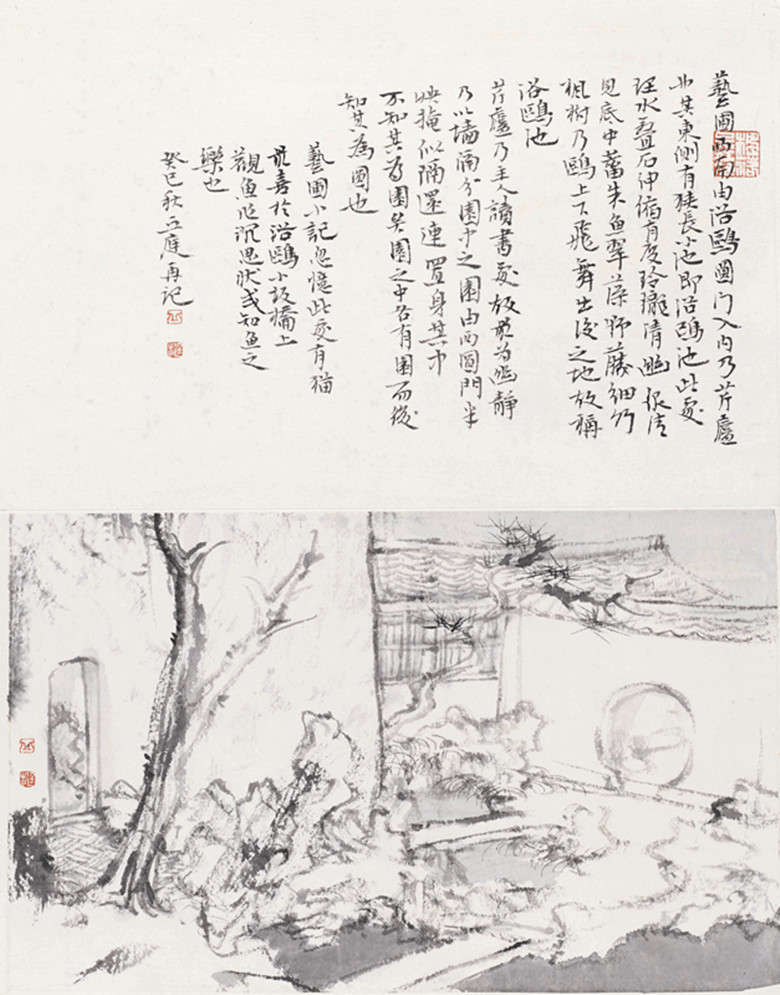 藝圃西南由浴鷗圓门入内乃芹廬
其東側有狹長小池即浴鷗池此處
理水叠石伸縮有度玲瓏清幽清
見底中蓄朱鱼翠藻野藤細竹
楓樹乃鷗上下飛舞出没之地故稱
浴鷗池
芹廬乃主人讀書處故最为幽静
乃以墙分園中之園由西圓門半
映掩似隔還連置身其中
不知其为園矣園之中各有園而後
知其為園也
藝圃小記忽憶此處有猫
最喜於浴鷗小板橋上
觀鱼作沉思狀或知鱼之
樂也
癸巳秋庭再记